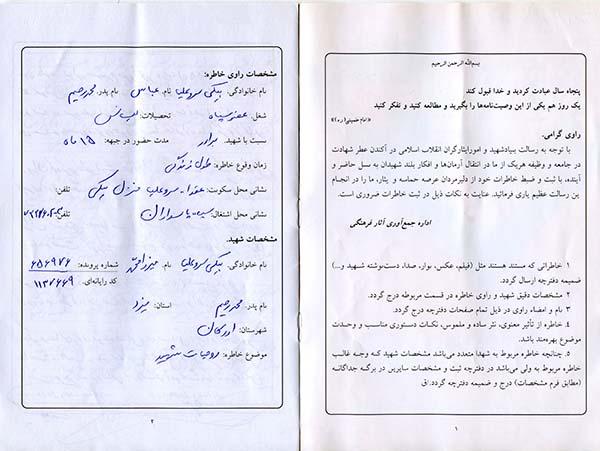 بسم‌الله الرحمن الرحیم
پنجاه سال عبادت کردید و خدا قبول کند
یک روز هم یکی از این وصیت‌نامه‌ها را بگیرید و مطالعه کنید و تفکر کنید
«امام خمینی(ره)»
راوی گرامی.
با توجه به رسالت بنیادشهید و امورایثارگران انقلاب اسلامی در آکندن عطر شهادت
در جامعه و وظیفه هریک از ما در انتقال آرمان‌ها و افکار بلند شهیدان به نسل حاضر و
آینده، با ثبت و ضبط خاطرات خود از دلیرمردان عرصه حماسه و ایثار، ما را در انجام
این رسالت عظیم یاری فرمائید. عنایت به نکات ذیل در ثبت خاطرات ضروری است.
اداره جمع‌آوری آثار فرهنگی
۱. خاطراتی که مستند هستند مثل (فیلم، عکس، نوار، صدا، دست‌نوشته شهید و...)
ضمیمه دفترچه ارسال گردد.
۲. مشخصات دقیق شهید و راوی خاطره در قسمت مربوطه درج گردد.
۳. نام و امضاء راوی در ذیل تمام صفحات دفترچه درج گردد.
۴. خاطره از تأثیر معنوی، نثر ساده و ملموس، نکات دستوری مناسب و وحدت
موضوع بهره‌مند باشد.
۵. چنانچه خاطره مربوط به شهدا متعدد می‌باشد مشخصات شهید که وجه غالب
خاطره مربوط به ولی می‌باشد در دفترچه ثبت و مشخصات سایرین در برگه جداگانه
(مطابق فرم مشخصات) درج و ضمیمه دفترچه گردد./ق
۱
مشخصات راوی خاطره:
نام خانوادگی: بیکی سروعلیا نام: عباس نام پدر: محمدرحیم
شغل: عضو سپاه تحصیلات: لیسانس
نسبت با شهید: برادر مدت حضور در جبهه: ۱۵ ماه
زمان وقوع خاطره: طول زندگی
نشانی محل سکونت: عقدا - سروعلیا منزل بیکی تلفن:
نشانی محل اشتغال: سپاه پاسداران تلفن:
مشخصات شهید:
نام خانوادگی: بیکی سروعلیا نام: میرزامحمد شماره پرونده: ۶۵۶۹۷۶
کد رایانه‌ای: ۱۱۳۷۶۶۹
نام پدر: محمدرحیم استان: یزد
شهرستان: اردکان
موضوع خاطره: روحیات شهید
۲